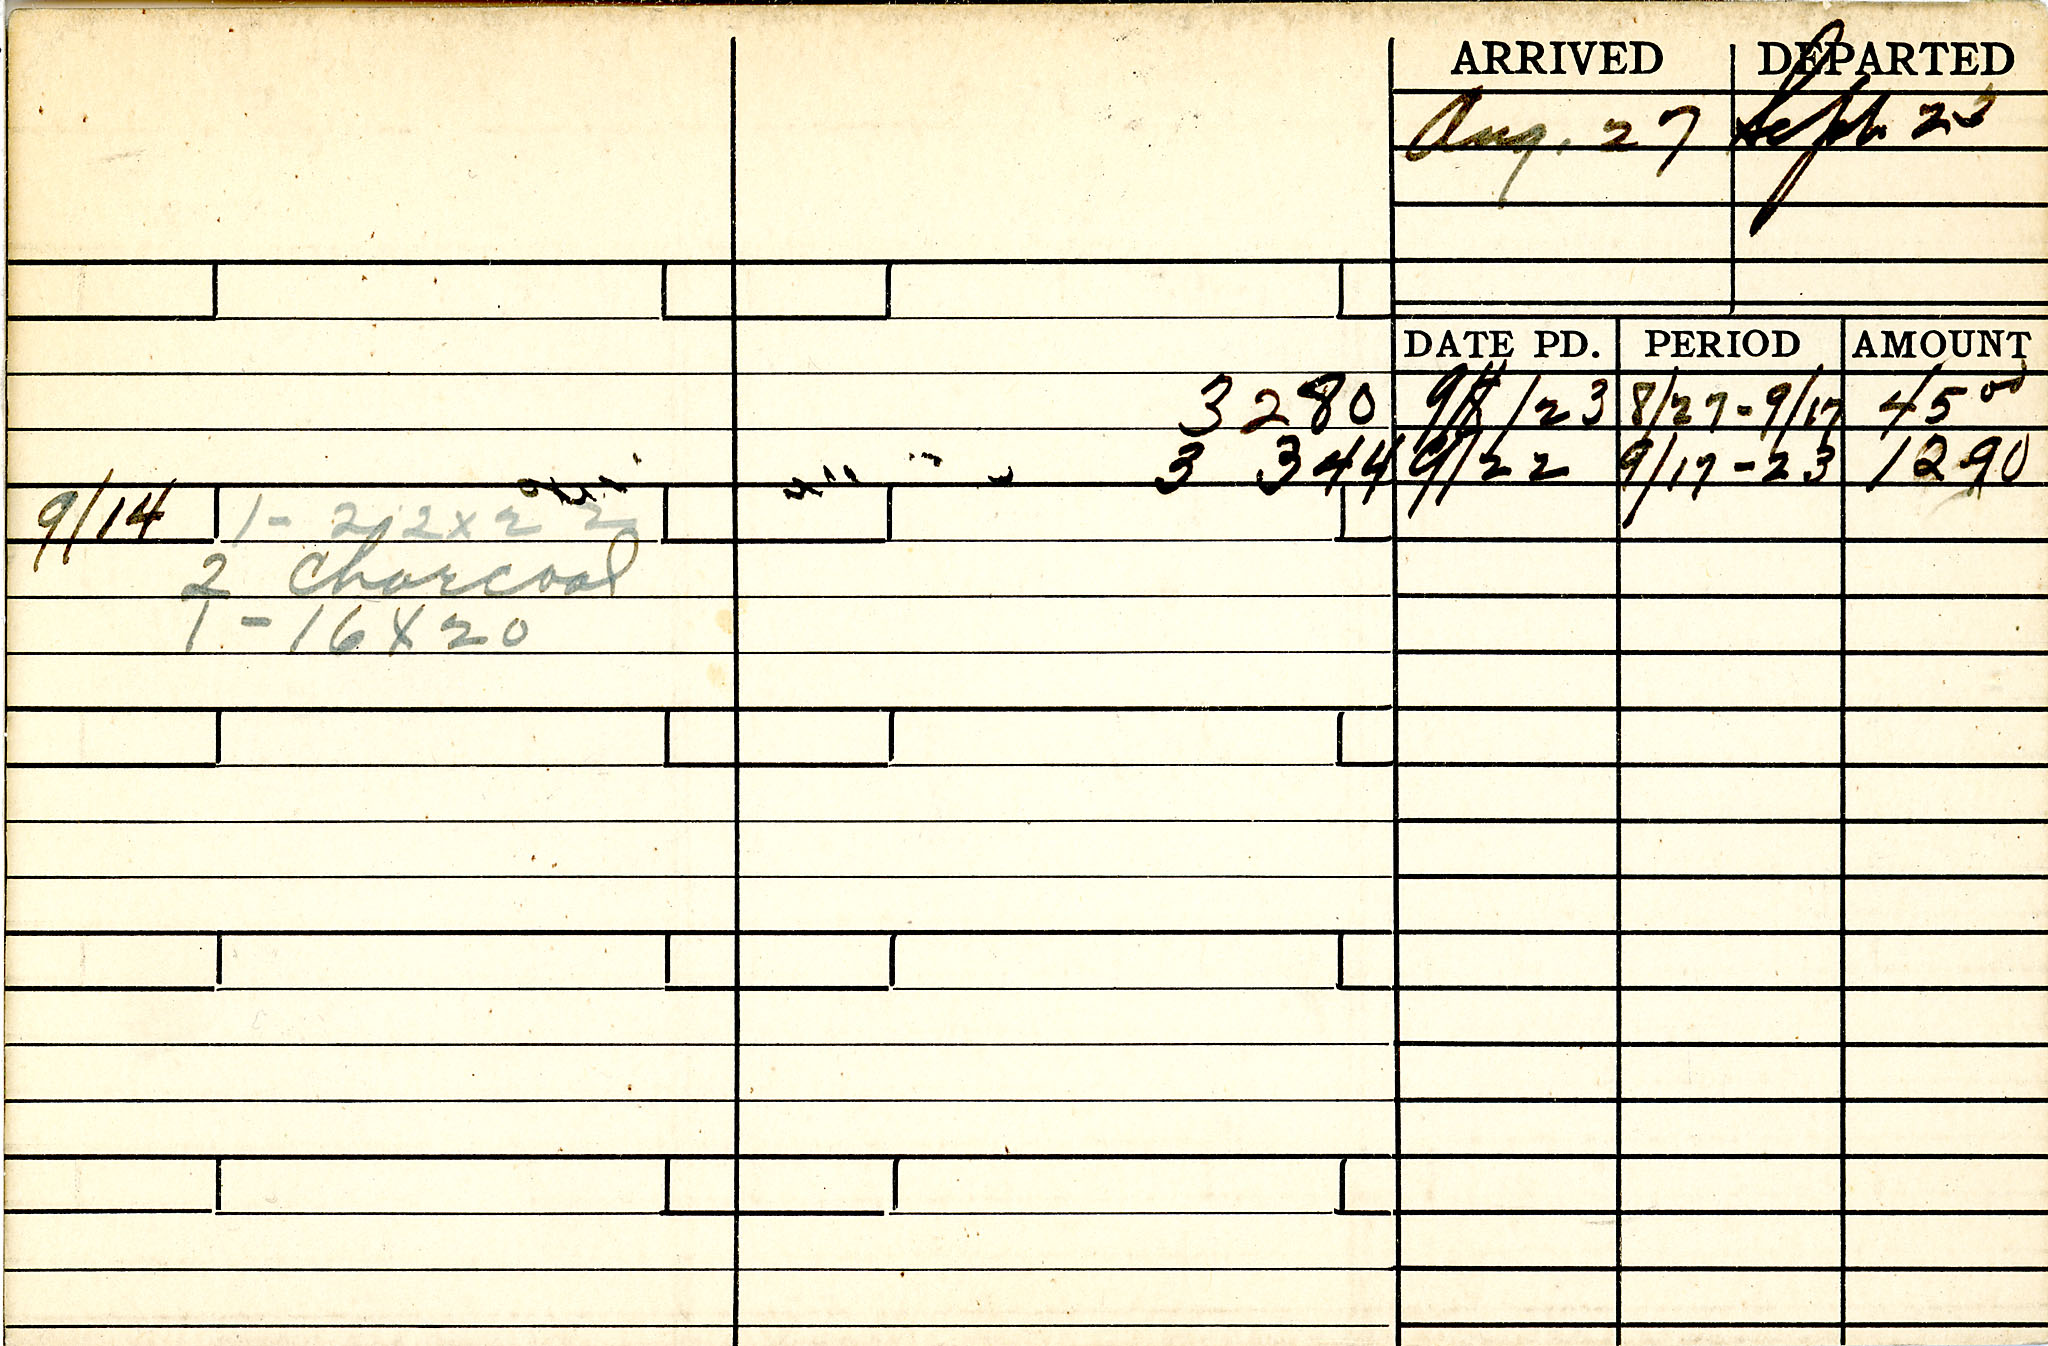 ARRIVED DEPARTED
Aug. 27 Sept. 23
DATE PD. PERIOD AMOUNT
3280 9/8/23 8/27-9/17 45 00
3344 9/22 9/17-23 12 90
9/14 1-
2 Charcoal
1-16X20